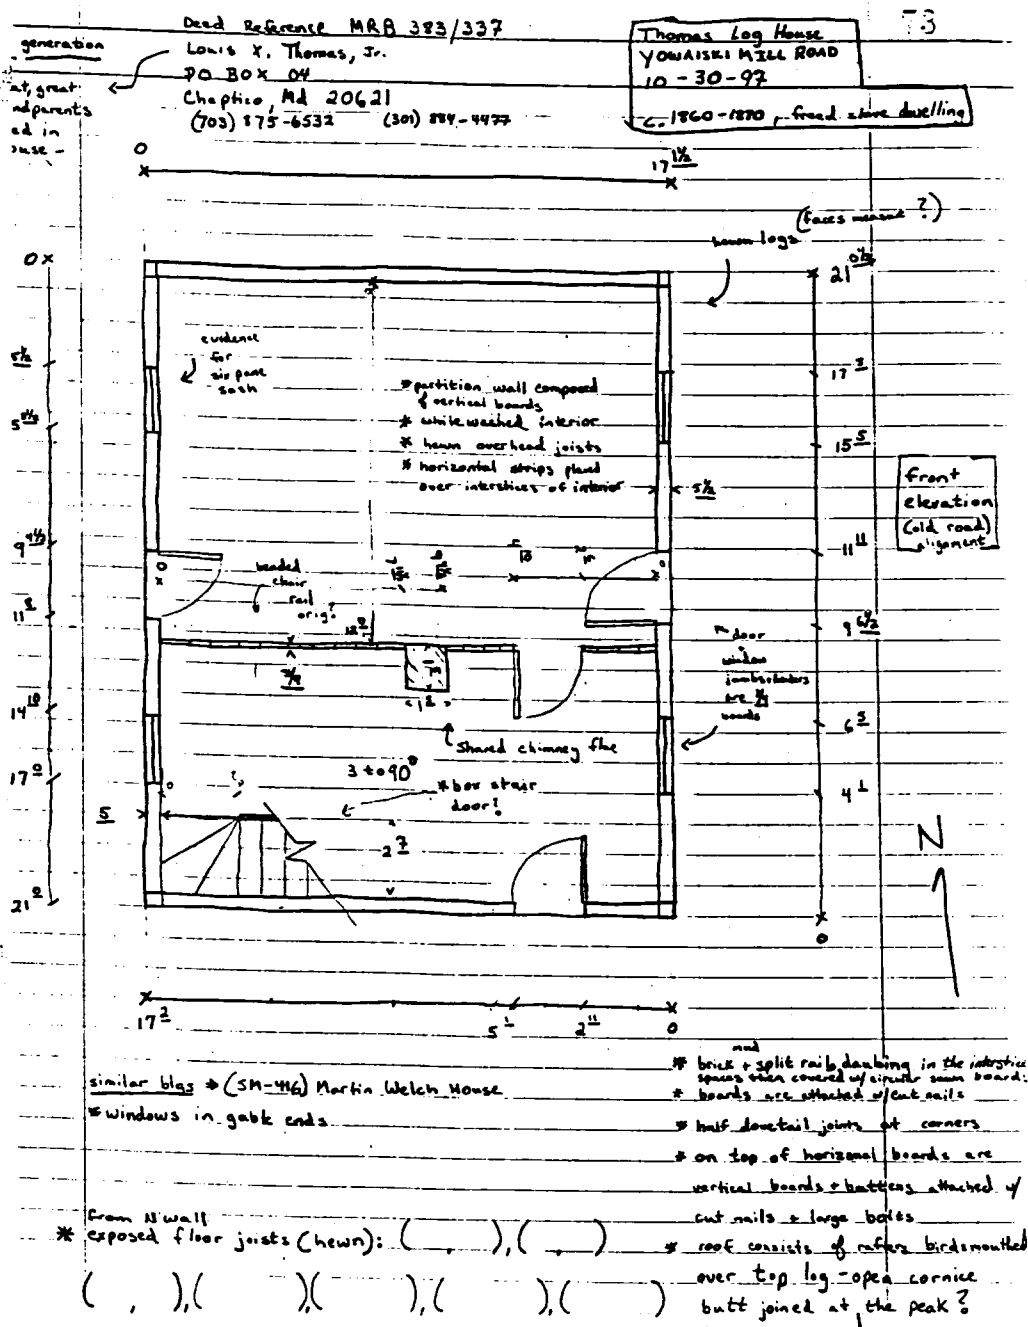 73
Deed Reference MRB 383/337
Louis X. Thomas, Jr.
PO BOX 04
Chaptico, Md 20621
(703) 875-6532 (301) 884-4477
generation
at, great
ndparents
ed in
ouse -
Thomas Log House
YOWAISKI MILL ROAD
10 - 30 - 97
c. 1860-1880, freed slave dwelling
0
17 1½
(faces measure ?)
hewn logs
0
5½
9
11
14 10
17 0
21 0
21
17 3
15 5
11 11
9
6 5
4 1
0
evidence
for
six pane
sash
* partition wall composed
of vertical boards
* whitewashed interior
* hewn overhead joists
* horizontal strips placed
over interstices of interior
5½
front
elevation
(old road)
alignment
beaded
chair
rail
orig?
door
window
are
boards
Shared chimney flue
3 to 90°
* box stair
door?
?
5
2 7
N
17 2
5 1
2 11
0
similar blgs * (SM-416) Martin Welch House
* windows in gable ends
mud
* brick + split rails, daubing in the interstice
spaces then covered w/ circular sawn boards
* boards are attached w/ cut nails
* half dovetail joints at corners
* on top of horizonal boards are
vertical boards + battens attached w/
cut nails + large bolts
* roof consists of rafters birdsmouthed
over top log - open cornice
butt joined at the peak?
from N wall
* exposed floor joists (hewn): ( , ), ( , )
( , ), ( ), ( ), ( ), ( )